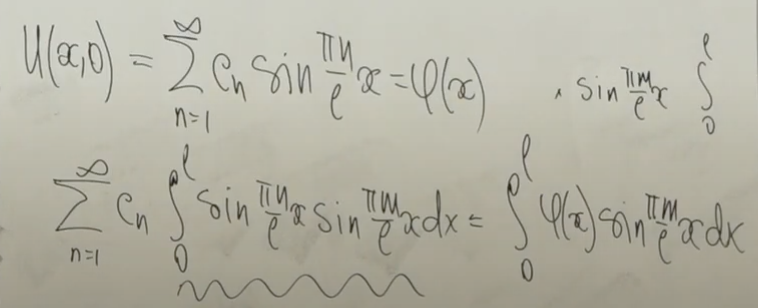 U(x,0) = ∑_{n=1}^{∞} C_n sin (πn/ℓ) x = φ(x)   · sin (πm/ℓ) x ∫_0^ℓ
∑_{n=1}^{∞} C_n ∫_0^ℓ sin (πn/ℓ) x sin (πm/ℓ) x dx = ∫_0^ℓ φ(x) sin (πm/ℓ) x dx